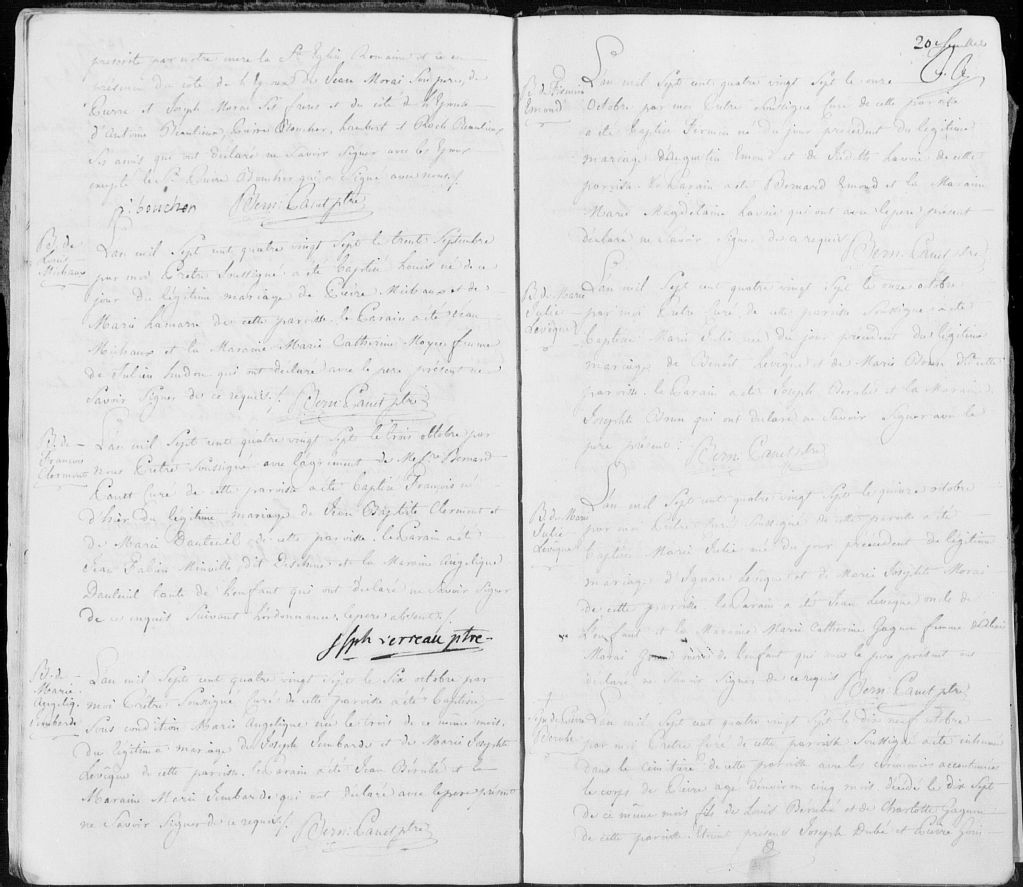 prescrite par notre mere la Ste Eglise Romaine et ce en
présence du coté de l'Epoux de Jean Morai Son pere, de
Pierre et Joseph Morai Ses freres et du coté de l'Epouse
d'Antoine Beaulieux, Pierre Boucher, Lambert et Roch Beaulieux
Ses amis qui ont déclaré ne Savoir Signer avec les Epoux
excepté le Sr Pierre Boucher qui a Signé avec nous
p. boucher Bern. Panet ptre
B. de
Louis
Michaux
L'an mil Sept cent quatre vingt Sept le trente Septembre
par moi Prêtre Soussigné a été baptisé Louis né de ce
jour du légitime mariage de Pierre Michaux et de
Marie Lamare de cette paroisse. le Parain a été Jean
Michaux et la Maraine Marie Catherine Moyen femme
de Julien hudon qui ont déclaré avec le pere présent ne
Savoir Signer de ce requis. Bern. Panet ptre
B. de
François
Clermont
L'an mil Sept cent quatre vingt Sept le trois octobre par
Nous Prêtre Soussigné avec l'agrément de Bernard
Panet Curé de cette paroisse a été baptisé François né
d'hier du légitime mariage de Jean Baptiste Clermont et
de Marie Dauteuil de cette paroisse. le Parain a été
Jean Fabien Minville dit et la Maraine Angelique
Dauteuil tante de l'enfant qui ont déclaré ne Savoir Signer
de ce enquit Suivant l'ordonnance, le pere absent
Jph verreau ptre
B. de
Marie
Angeliq.
Jimbarde
L'an mil Sept cent quatre vingt Sept le Six octobre par
moi Prêtre Soussigné Curé de cette paroisse a été baptisé
Sous condition Marie Angelique née le trois de ce même mois
du légitime mariage de Joseph Jimbarde et de Marie Josephte
Levêque de cette paroisse. le Parain a été Jean Bérubé et la
Maraine Marie Jimbarde qui ont déclaré avec le pere présent
ne Savoir Signer de ce requis. Bern. Panet ptre
20
B. de Firmin
Emond
L'an mil Sept cent quatre vingt Sept le onze
Octobre par moi Prêtre Soussigné Curé de cette paroisse
a été baptisé Firmin né du jour précédent du légitime
mariage d'Augustin Emond et de Judith Lavoie de cette
paroisse. le Parain a été Bernard Emond et la Maraine
Marie Magdelaine Lavoie qui ont avec le pere présent
déclaré ne Savoir Signer de ce requis Bern. Panet ptre
B. de Marie
Julie
Levêque
L'an mil Sept cent quatre vingt Sept le onze octobre
par moi Prêtre Curé de cette paroisse Soussigné a été
baptisée Marie Julie née du jour précédent du légitime
mariage de Benoit Levêque et de Marie Ouin de cette
paroisse. le Parain a été Joseph Berubé et la Maraine
Josephte Ouin qui ont déclaré ne Savoir Signer avec le
pere présent. Bern. Panet ptre
B. de Marie
Julie
Levêque
L'an mil Sept cent quatre vingt Sept le quinze octobre
par moi Prêtre Curé Soussigné de cette paroisse a été
baptisée Marie Julie née du jour précédent du légitime
mariage d'Ignace Levêque et de Marie Josephte Morai
de cette paroisse. le Parain a été Jean Levêque oncle de
l'enfant et la Maraine Marie Catherine Gagnon femme
Morai Grand mere de l'enfant qui avec le pere présent ont
déclaré ne Savoir Signer de ce requis Bern. Panet ptre
Sép. de Pierre
Berubé
L'an mil Sept cent quatre vingt Sept le dix neuf octobre
par moi Prêtre Curé de cette paroisse Soussigné a été inhumé
dans le Cimitiere de cette paroisse avec les cérémonies accoutumées
le corps de Pierre agé d'environ cinq mois décédé le dix Sept
de ce même mois fils de Louis Bérubé et de Charlotte Gagnon
de cette paroisse. étoient présents Joseph Dubé et Pierre